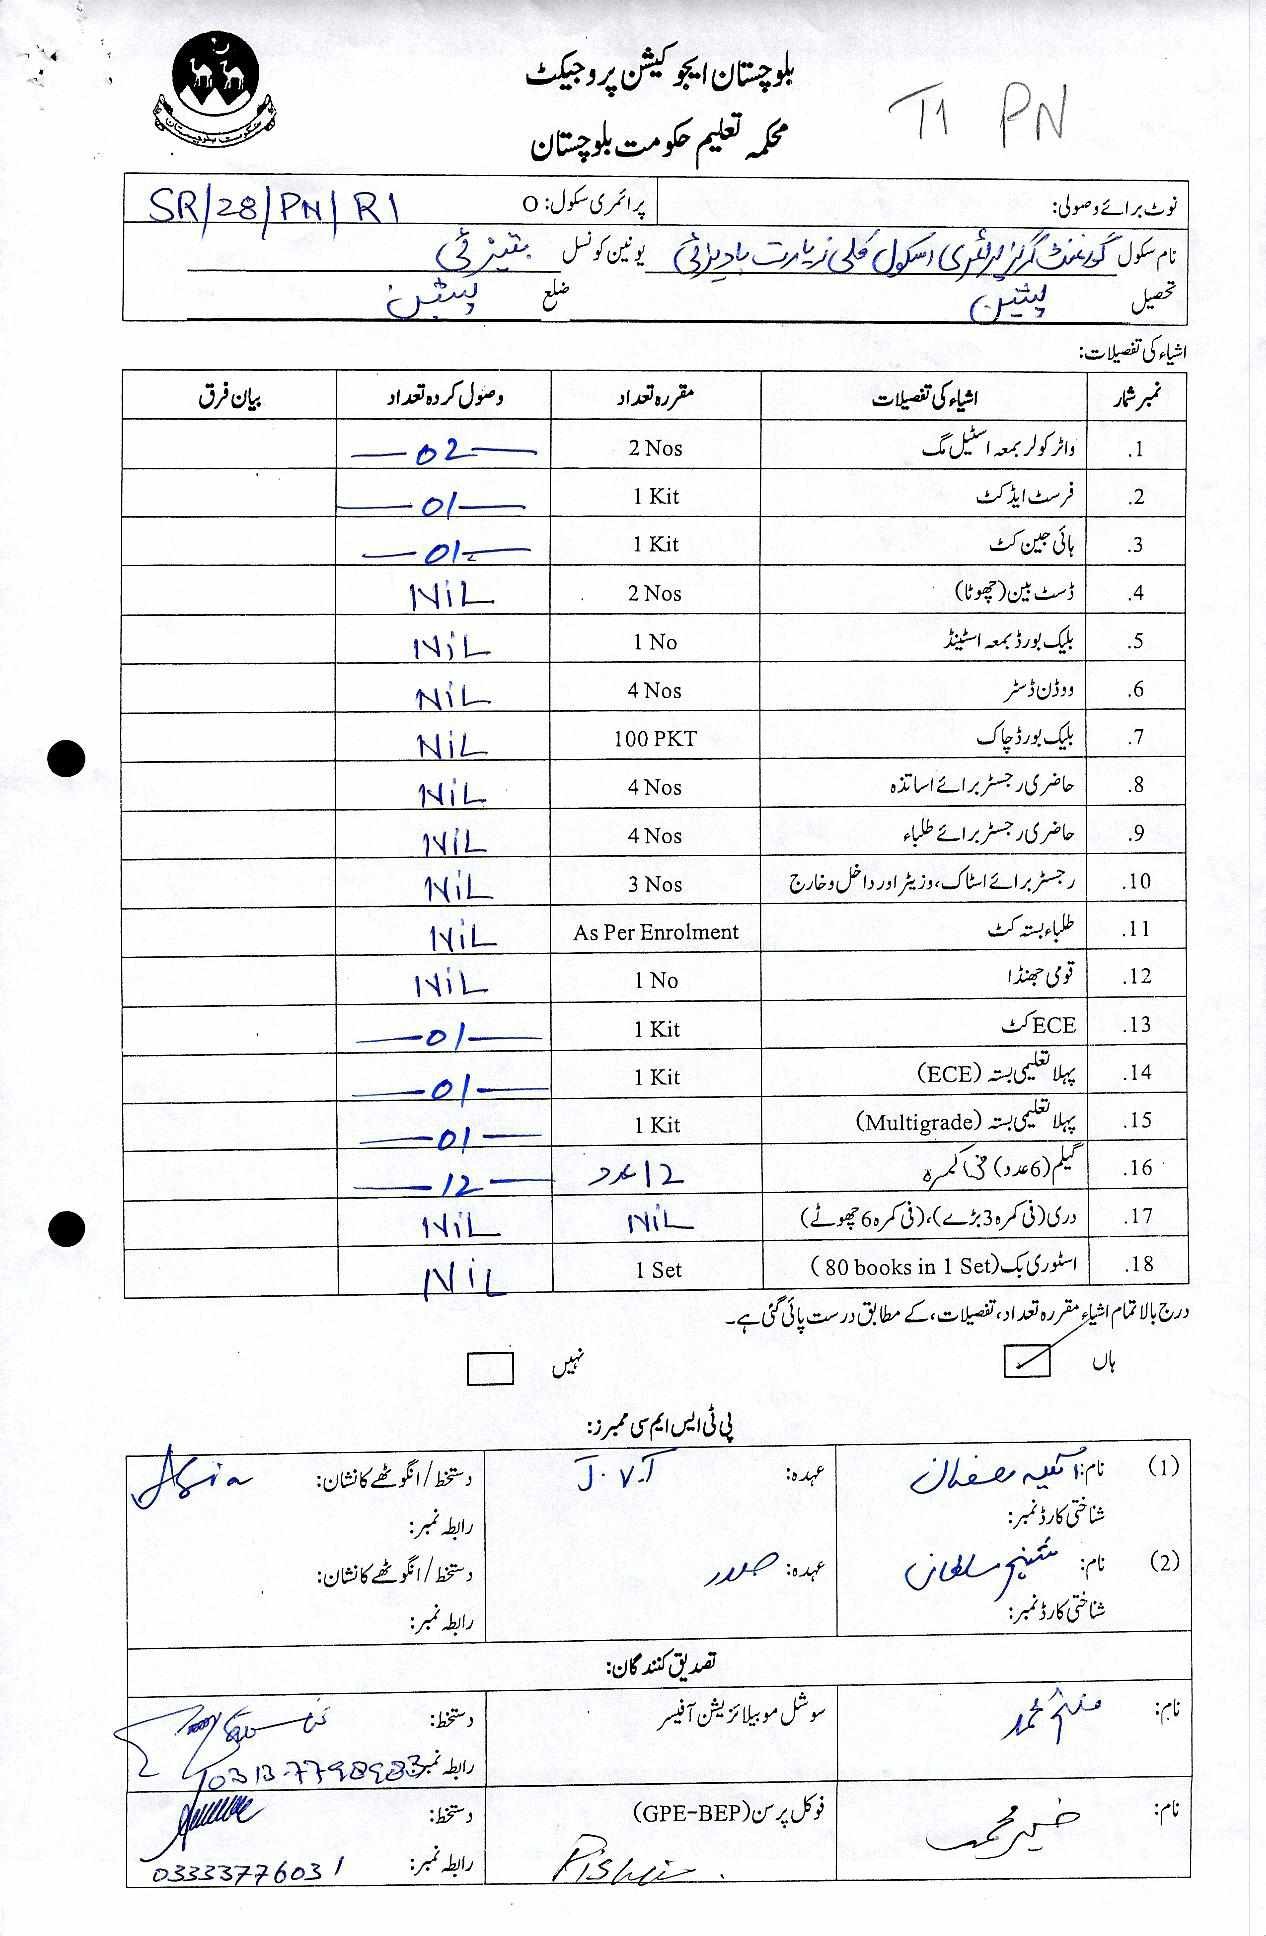 بلوچستان ایجوکیشن پروجیکٹ
T1 PN
محکمہ تعلیم حکومت بلوچستان
نوٹ برائے وصولی: پرائمری سکول: O SR/28/PN/R1
نام سکول گورنمنٹ گرلز پرائمری اسکول کلی زیارت بادیزئی یونین کونسل
تحصیل پشین ضلع پشین
اشیاء کی تفصیلات:
نمبر شمار اشیاء کی تفصیلات مقررہ تعداد وصول کردہ تعداد بیان فرق
1. واٹر کولر بمعہ اسٹیل مگ 2 Nos 02
2. فرسٹ ایڈ کٹ 1 Kit 01
3. ہائی جین کٹ 1 Kit 01
4. ڈسٹ بین (چھوٹا) 2 Nos NiL
5. بلیک بورڈ بمعہ اسٹینڈ 1 No NiL
6. ووڈن ڈسٹر 4 Nos NiL
7. بلیک بورڈ چاک 100 PKT NiL
8. حاضری رجسٹر برائے اساتذہ 4 Nos NiL
9. حاضری رجسٹر برائے طلباء 4 Nos NiL
10. رجسٹر برائے اسٹاک، وزیٹر اور داخل و خارج 3 Nos NiL
11. طلباء بستہ کٹ As Per Enrolment NiL
12. قومی جھنڈا 1 No NiL
13. ECE کٹ 1 Kit 01
14. پہلا تعلیمی بستہ (ECE) 1 Kit 01
15. پہلا تعلیمی بستہ (Multigrade) 1 Kit 01
16. گیلم (6 عدد) فی کمرہ 12 عدد 12
17. دری (فی کمرہ 3 بڑے)، (فی کمرہ 6 چھوٹے) NiL NiL
18. اسٹوری بک (80 books in 1 Set) 1 Set NiL
درج بالا تمام اشیاء مقررہ تعداد، تفصیلات، کے مطابق درست پائی گئی ہے۔
ہاں نہیں
پی ٹی ایس ایم سی ممبرز:
(1) نام: عہدہ: J.V.T دستخط/انگوٹھے کا نشان: Asia
شناختی کارڈ نمبر: رابطہ نمبر:
(2) نام: عہدہ: صدر دستخط/انگوٹھے کا نشان:
شناختی کارڈ نمبر: رابطہ نمبر:
تصدیق کنندگان:
نام: سوشل موبیلائزیشن آفیسر دستخط:
رابطہ نمبر: 0313-7798983
نام: خیر محمد فوکل پرسن (GPE-BEP) Pishin دستخط:
رابطہ نمبر: 03333776031